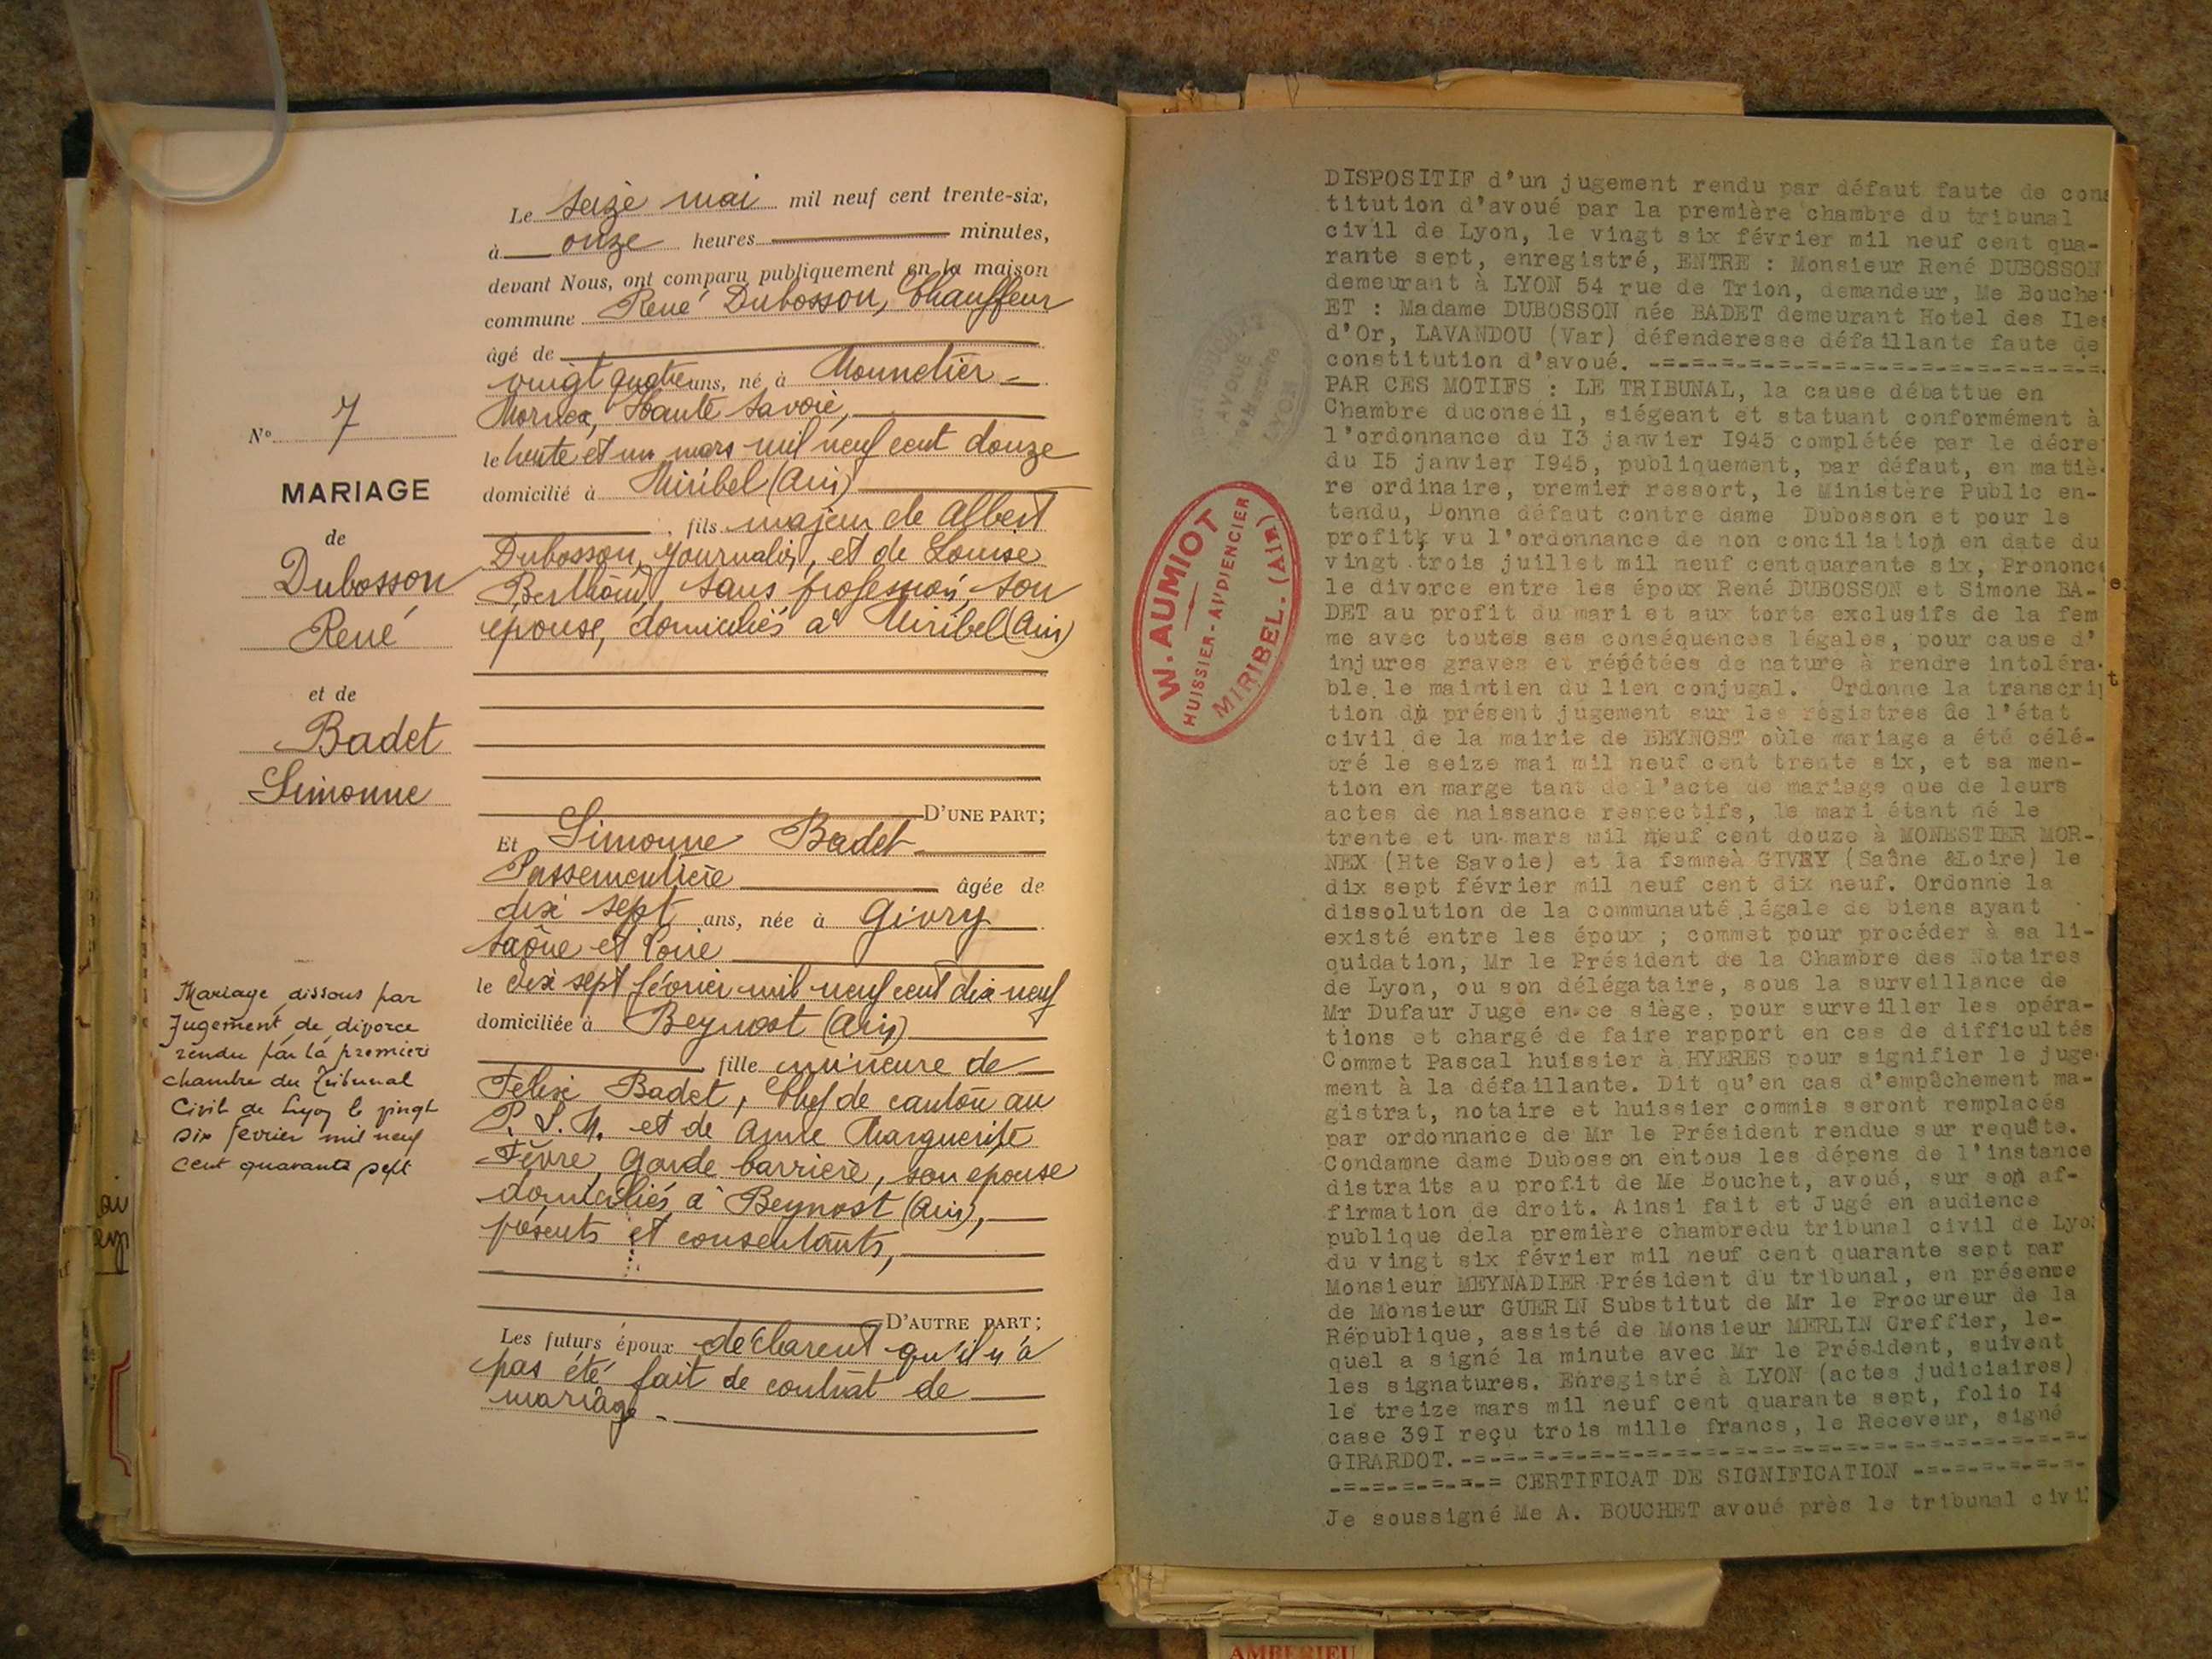 Le seize mai mil neuf cent trente-six,
à onze heures minutes,
devant Nous, ont comparu publiquement en la maison
commune René Dubosson, Chauffeur
âgé de
vingt quatre ans, né à Monnetier-
Mornex, Haute Savoie,
le trente et un mars mil neuf cent douze
domicilié à Miribel (Ain)
fils majeur de Albert
Dubosson, journalier, et de Louise
Berthoud, sans profession, son
épouse, domiciliés à Miribel (Ain)
D'UNE PART;
Et Simonne Badet
Passementière âgée de
dix sept ans, née à Givry
Saône et Loire
le dix sept février mil neuf cent dix neuf
domiciliée à Beynost (Ain)
fille mineure de
Felix Badet, Chef de canton au
P. L. M. et de Anne Marguerite
Fèvre, Garde barrière, son epouse
domiciliés à Beynost (Ain),
présents et consentants,
D'AUTRE PART;
Les futurs époux déclarent qu'il n'a
pas été fait de contrat de
mariage.-
N° 7
MARIAGE
de
Dubosson
René
et de
Badet
Simonne
Mariage dissous par
Jugement de divorce
rendu par la premiere
chambre du Tribunal
Civil de Lyon le vingt
six fevrier mil neuf
cent quarante sept
W. AUMIOT
HUISSIER-AUDIENCIER
MIRIBEL. (AIN)
AVOUÉ
LYON
DISPOSITIF d'un jugement rendu par défaut faute de cons
titution d'avoué par la première chambre du tribunal
civil de Lyon, le vingt six février mil neuf cent qua-
rante sept, enregistré, ENTRE : Monsieur René DUBOSSON
demeurant à LYON 54 rue de Trion, demandeur, Me Bouche
ET : Madame DUBOSSON née BADET demeurant Hotel des Iles
d'Or, LAVANDOU (Var) défenderesse défaillante faute de
constitution d'avoué. -=-=-=-=-=-=-=-=-=-=-=-=-=-=-=-
PAR CES MOTIFS : LE TRIBUNAL, la cause débattue en
Chambre duconseil, siégeant et statuant conformément à
l'ordonnance du I3 janvier I945 complétée par le décre
du I5 janvier I945, publiquement, par défaut, en matiè-
re ordinaire, premier ressort, le Ministère Public en-
tendu, Donne défaut contre dame Dubosson et pour le
profit, vu l'ordonnance de non conciliation en date du
vingt trois juillet mil neuf centquarante six, Prononce
le divorce entre les époux René DUBOSSON et Simone BA-
DET au profit du mari et aux torts exclusifs de la fem
me avec toutes ses conséquences légales, pour cause d'
injures graves et répétées de nature à rendre intoléra-
ble le maintien du lien conjugal. Ordonne la transcri
tion du présent jugement sur les registres de l'état
civil de la mairie de BEYNOST oùle mariage a été célé-
bré le seize mai mil neuf cent trente six, et sa men-
tion en marge tant de l'acte de mariage que de leurs
actes de naissance respectifs, le mari étant né le
trente et un mars mil neuf cent douze à MONESTIER MOR-
NEX (Hte Savoie) et la femmeà GIVRY (Saône &Loire) le
dix sept février mil neuf cent dix neuf. Ordonne la
dissolution de la communauté légale de biens ayant
existé entre les époux ; commet pour procéder à sa li-
quidation, Mr le Président de la Chambre des Notaires
de Lyon, ou son délégataire, sous la surveillance de
Mr Dufaur Juge en ce siège, pour surveiller les opéra-
tions et chargé de faire rapport en cas de difficultés
Commet Pascal huissier à HYERES pour signifier le juge-
ment à la défaillante. Dit qu'en cas d'empêchement ma-
gistrat, notaire et huissier commis seront remplacés
par ordonnance de Mr le Président rendue sur requête.
Condamne dame Dubosson entous les dépens de l'instance
distraits au profit de Me Bouchet, avoué, sur son af-
firmation de droit. Ainsi fait et Jugé en audience
publique dela première chambredu tribunal civil de Lyo
du vingt six février mil neuf cent quarante sept par
Monsieur MEYNADIER Président du tribunal, en présence
de Monsieur GUERIN Substitut de Mr le Procureur de la
République, assisté de Monsieur MERLIN Greffier, le-
quel a signé la minute avec Mr le Président, suivent
les signatures. Enregistré à LYON (actes judiciaires)
le treize mars mil neuf cent quarante sept, folio I4
case 39I reçu trois mille francs, le Receveur, signé
GIRARDOT.-=-=-=-=-=-=-=-=-=-=-=-=-=-=-=-=-=-=-=-=-=-
-=-=-=-=-=-= CERTIFICAT DE SIGNIFICATION -=-=-=-=-=-=-
Je soussigné Me A. BOUCHET avoué près le tribunal civi
AMBERIEU